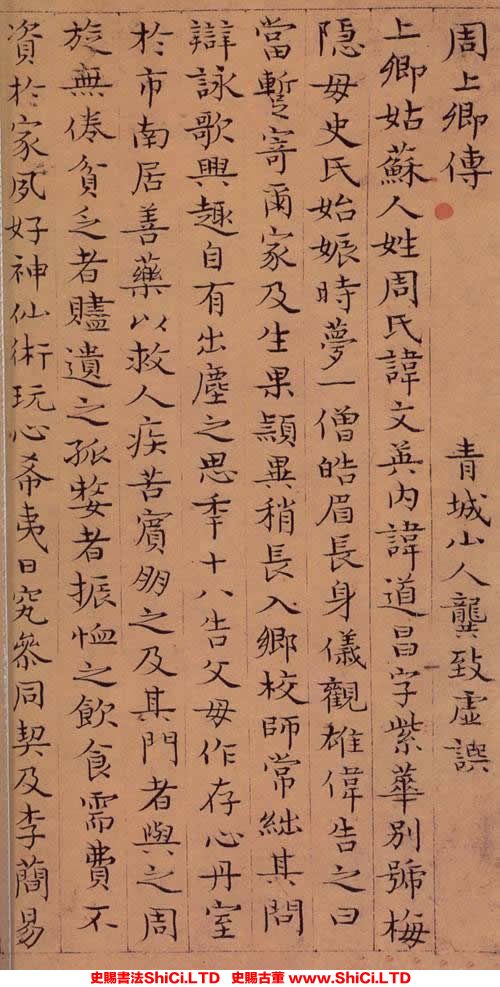 周上卿傳
青城山人龔致虛譔
上卿姑蘇人姓周氏諱文英內諱道昌字紫華別號梅
隠母史氏始娠時夢一僧皓眉長身儀觀雄偉告之曰
當蹔寄爾家及生果穎異稍長入鄉校師常絀其問
辯詠歌興趣自有出塵之思年十八告父母作存心丹室
於市南居善藥以救人疾苦賓朋之及其門者與之周
旋無倦貧乏者贐遺之孤嫠者振恤之飲食需費不
資於家夙好神仙術玩心希夷日究參同契及李簡易
史賜書法ShiCi.LTD 史賜古董 www.ShiCi.LTD